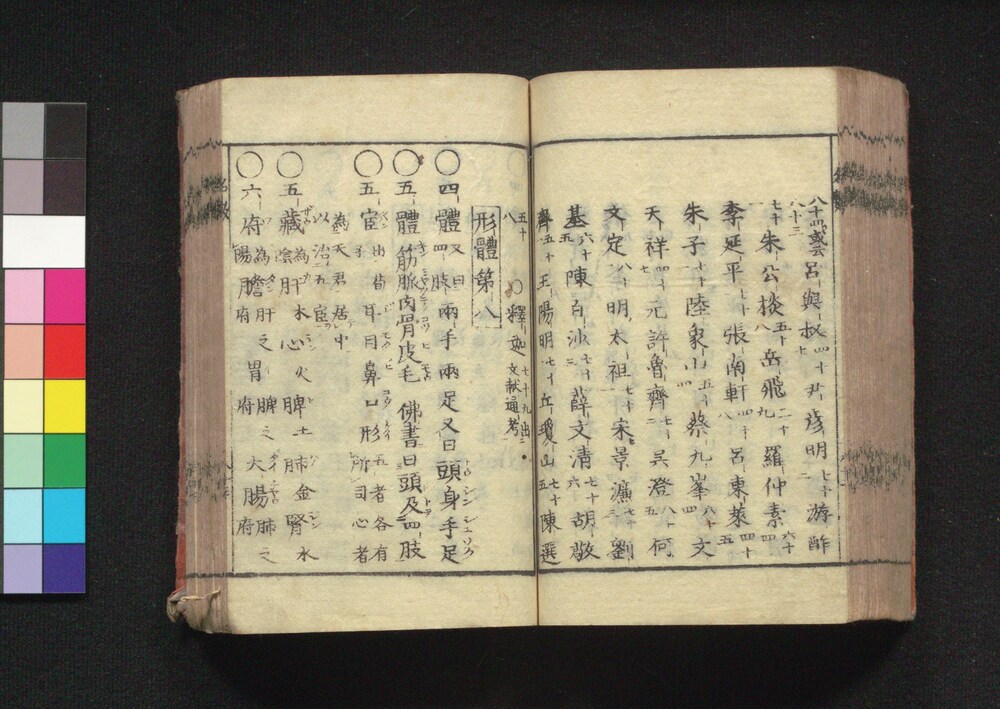 八十四或云八十三 呂與叔四十七 尹彦明七十二 游酢
七十一 朱公掞五十八 岳飛三十九 羅仲素六十四
李延平七十一 張南軒四十八 呂東萊四十五
朱子七十一 陸象山五十四 蔡九峯六十四 文
天祥四十七 元許魯齊七十二 吳澄八十五 何
文定八十一 明太祖七十一 宋景濂七十二 劉
基六十五 陳白沙七十三 薛文清七十六 胡敬
齊五十一 王陽明五十七 丘瓊山七十五 陳選
五十八 ○釋迦七十九出二文献通考一
形體第八
○四體又曰四肢兩手兩足又曰頭身手足
○五體筋脈肉骨皮毛 佛書曰頭及四肢
○五官出荀子耳目鼻口形五者各有所司心者
為天君居中以治五官
○五藏為陰肝木 心火 脾土 肺金 腎水
○六府為陽膽肝之府 胃脾之府 大腸肺之府